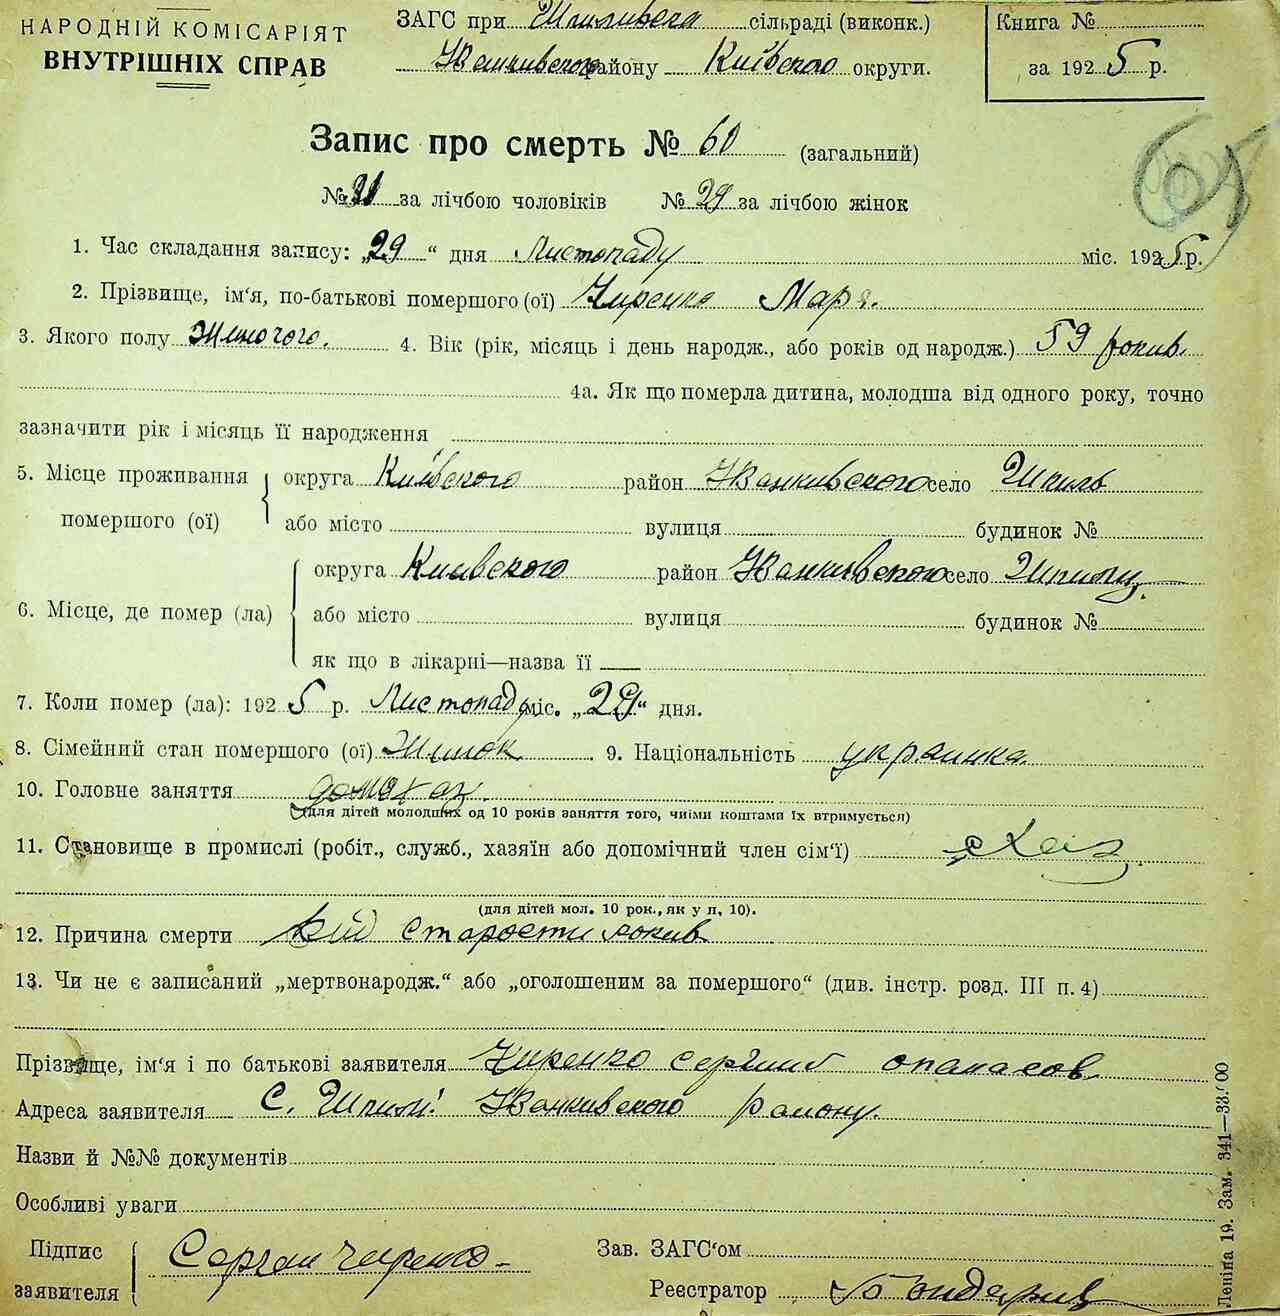 НАРОДНІЙ КОМІСАРІЯТ
ВНУТРІШНІХ СПРАВ
ЗАГС при Шпиливска сільраді (виконк.)
Іванкивского району Київского округи.
Книга №
за 1925 р.
Запис про смерть № 60 (загальний)
№ 31 за лічбою чоловіків № 29 за лічбою жінок
1. Час складання запису: „29“ дня Листопаду міс. 1925 р.
2. Прізвище, ім‘я, по-батькові помершого (ої) Чиренко Маря.
3. Якого полу Жиночого. 4. Вік (рік, місяць і день народж., або років од народж.) 59 рокив.
4а. Як що померла дитина, молодша від одного року, точно
зазначити рік і місяць її народження
5. Місце проживання помершого (ої)
округа Київского район Іванкивского село Шпиль
або місто вулиця будинок №
6. Місце, де помер (ла)
округа Киивского район Іванкивского село Шпили
або місто вулиця будинок №
як що в лікарні—назва її
7. Коли помер (ла): 1925 р. Листопаду міс. „29“ дня.
8. Сімейний стан помершого (ої) 9. Національність украинка
10. Головне заняття домахаз.
(для дітей молодших од 10 років заняття того, чиїми коштами їх втримується)
11. Становище в промислі (робіт., служб., хазяїн або допомічний член сім‘ї)
(для дітей мол. 10 рок., як у п. 10).
12. Причина смерти Вій старости рокив
13. Чи не є записаний „мертвонародж.“ або „оголошеним за помершого“ (див. інстр. розд. III п. 4)
Прізвище, ім‘я і по батькові заявителя Чиренко сергий опанасов
Адреса заявителя С. Шпили Іванкивского району.
Назви й №№ документів
Особліві уваги
Підпис заявителя Сергий Чиренко
Зав. ЗАГС‘ом
Реєстратор
Леніна 19. Зам. 341—33.000